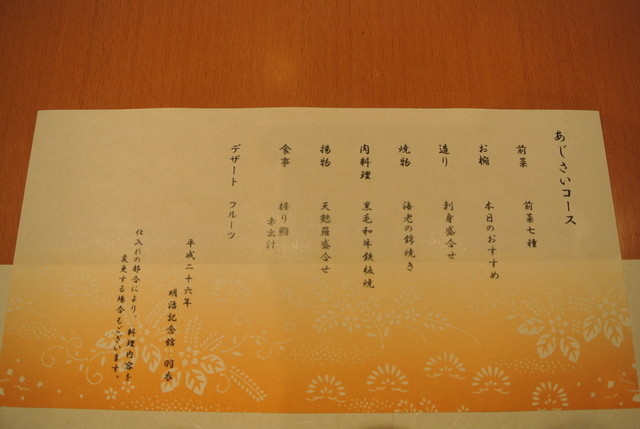 あじさいコース
前菜 前菜七種
お椀 本日のおすすめ
造り 刺身盛合せ
焼物 海老の錦焼き
肉料理 黒毛和牛鉄板焼
揚物 天麩羅盛合せ
食事 握り鮨
赤出汁
デザート フルーツ
平成二十六年
明治記念館 羽衣
仕入れの都合により、料理内容を
変更する場合もございます。